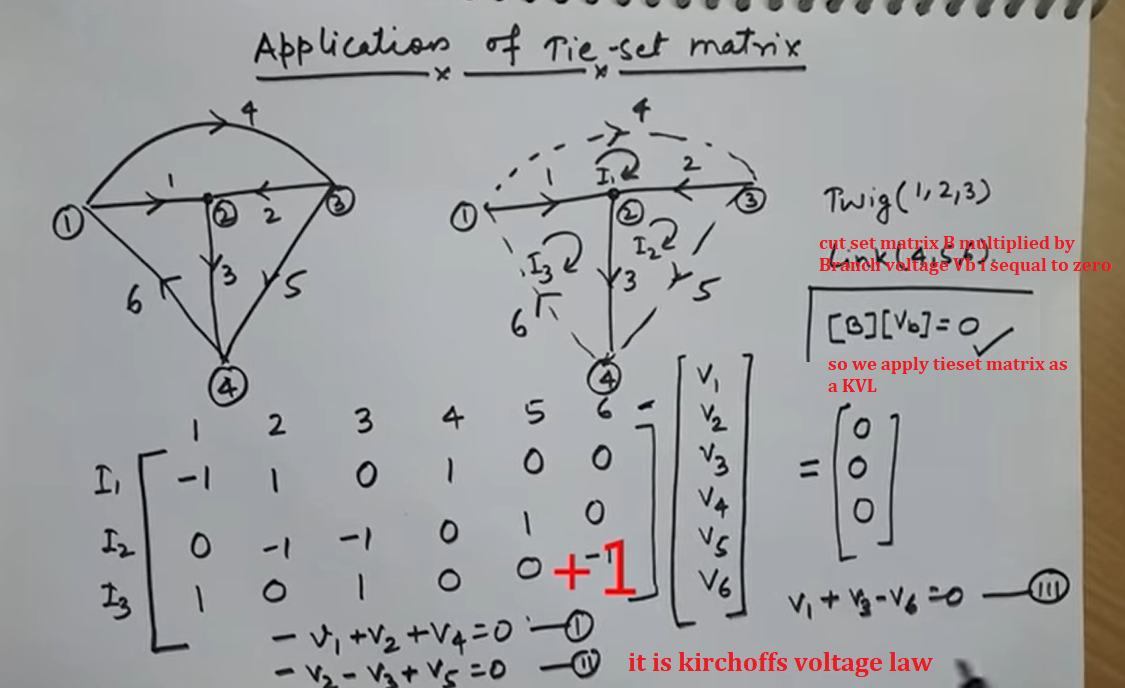 Application of Tie-set matrix
4
1
2
3
5
6
①
②
③
④
4
1
2
3
5
6
I₁
I₂
I₃
①
②
③
④
Twig (1,2,3)
cut set matrix B multiplied by
Branch voltage Vb i sequal to zero
Link (4,5,6).
[B][Vb]=0 ✓
so we apply tieset matrix as
a KVL
1 2 3 4 5 6
I₁ -1 1 0 1 0 0
I₂ 0 -1 -1 0 1 0
I₃ 1 0 1 0 0 -1
+1
V₁
V₂
V₃
V₄
V₅
V₆
=
0
0
0
- V₁ + V₂ + V₄ = 0 — Ⓘ
- V₂ - V₃ + V₅ = 0 — II
V₁ + V₃ - V₆ = 0 — III
it is kirchoffs voltage law